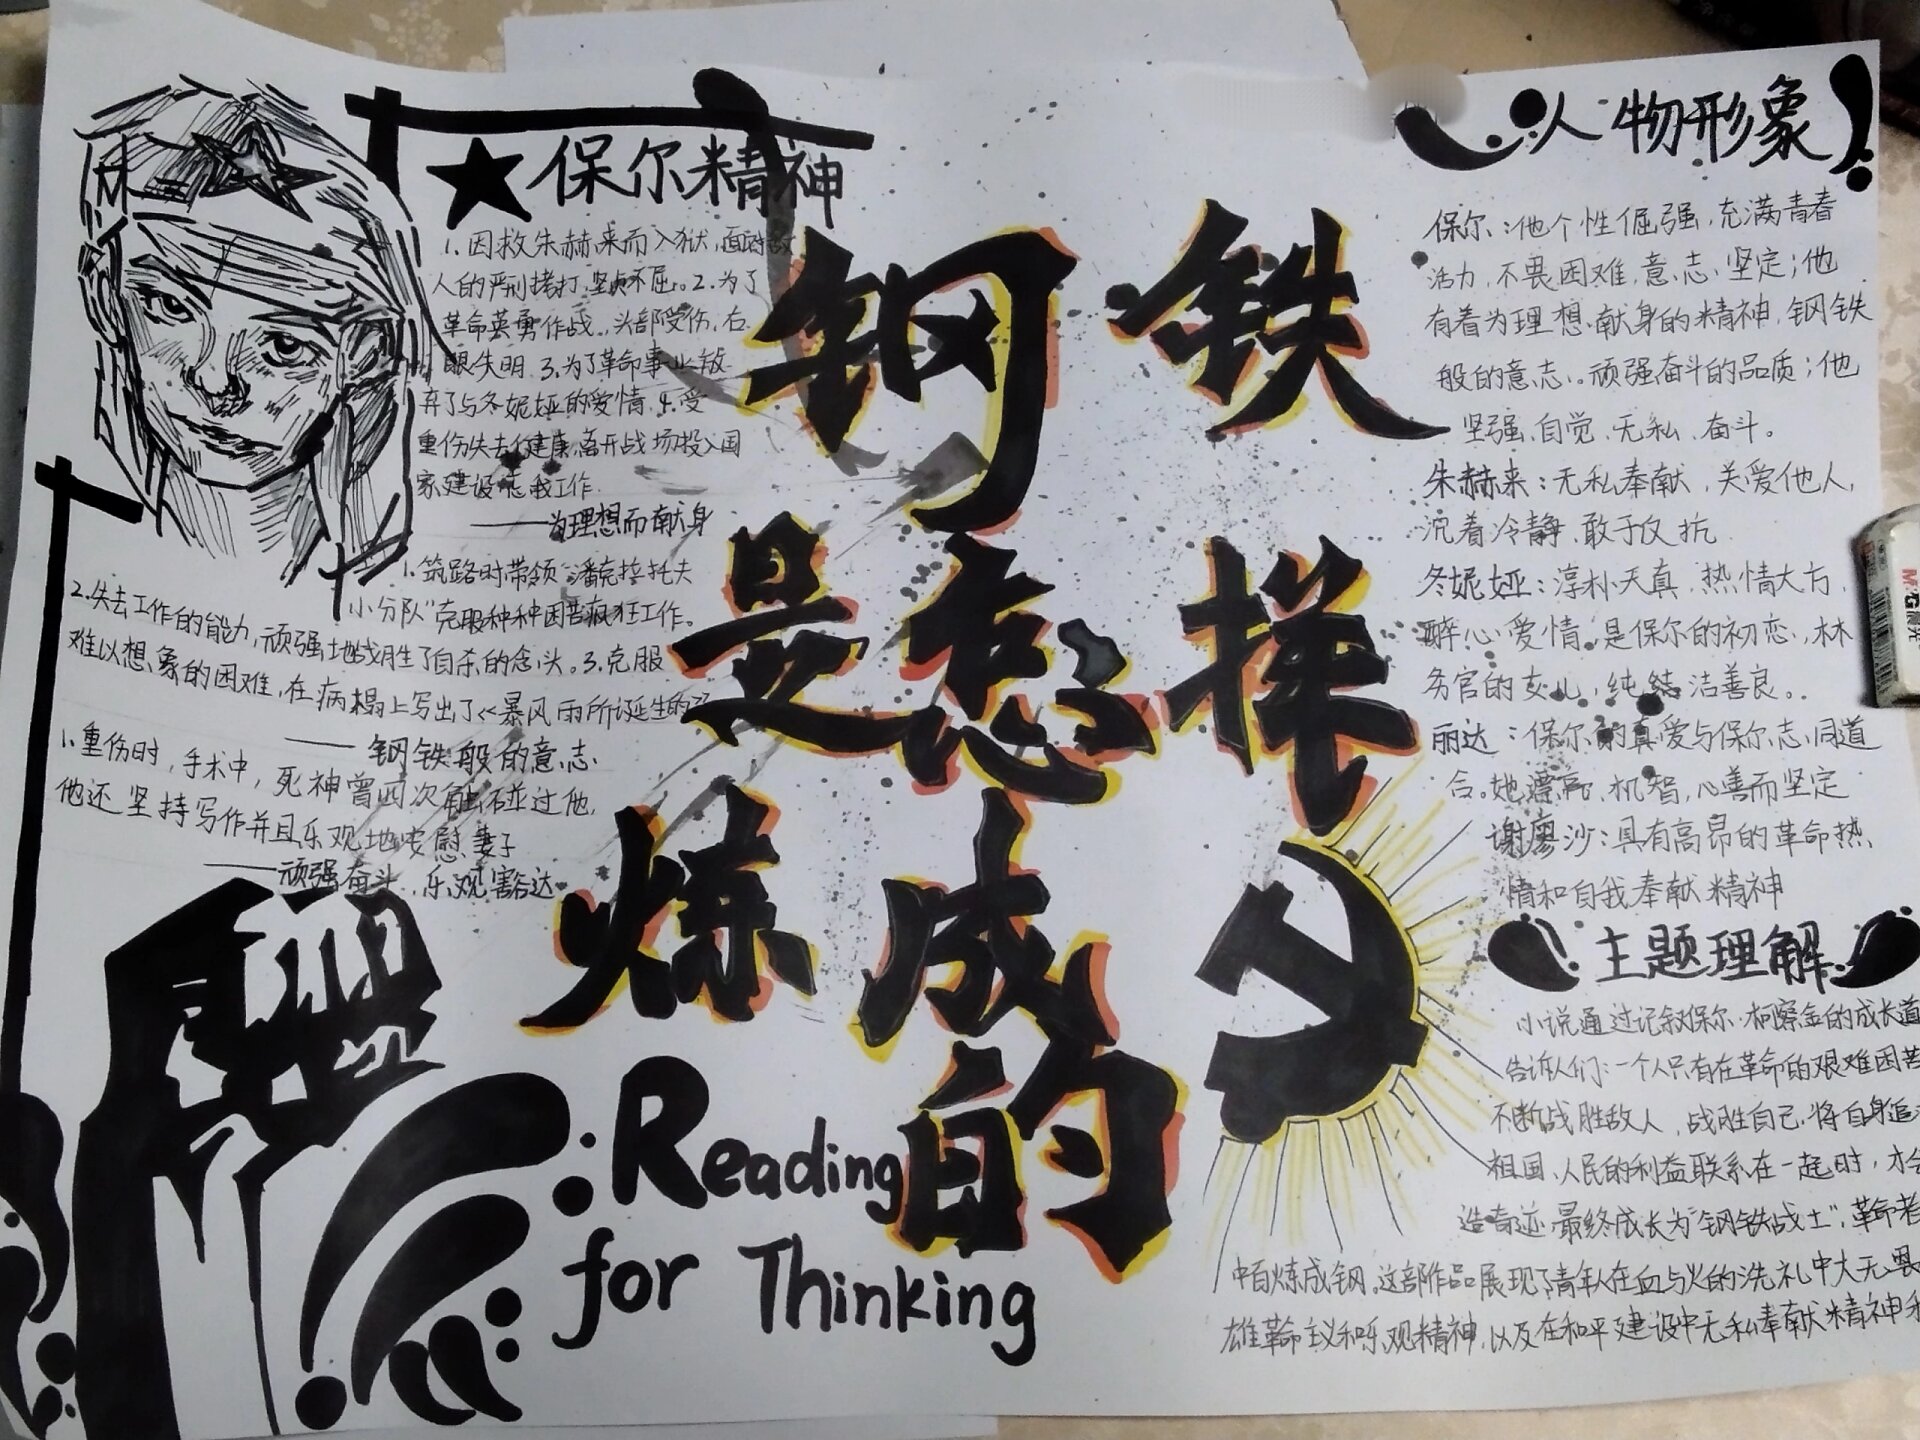 ★保尔精神
1.因救朱赫来而入狱,面对敌
人的严刑拷打,坚贞不屈。2.为了
革命英勇作战,头部受伤,右
眼失明.3.为了革命事业放
弃了与冬妮娅的爱情.4.受
重伤失去健康,离开战场投入国
家建设工作.
——为理想而献身
1.筑路时带领“潘克拉托夫
小分队”克服种种困苦疯狂工作。
2.失去工作的能力,顽强地战胜了自杀的念头。3.克服
难以想象的困难,在病榻上写出了《暴风雨所诞生的
——钢铁般的意志.
1.重伤时,手术中,死神曾四次触碰过他,
他还坚持写作并且乐观地安慰妻子
——顽强奋斗、乐观豁达
钢铁
是怎样
炼成
的
Reading
for Thinking
人物形象
保尔:他个性倔强,充满青春
活力,不畏困难,意志坚定;他
有着为理想献身的精神,钢铁
般的意志。顽强奋斗的品质;他
坚强、自觉、无私、奋斗。
朱赫来:无私奉献,关爱他人,
沉着冷静,敢于反抗
冬妮娅:淳朴天真,热情大方,
醉心爱情。是保尔的初恋,林
务官的女儿,纯洁善良。
丽达:保尔的真爱与保尔志同道
合。她漂亮、机智,心善而坚定
谢廖沙:具有高昂的革命热
情和自我奉献精神
主题理解
小说通过记叙保尔·柯察金的成长道
告诉人们:一个人只有在革命的艰难困苦
不断战胜敌人,战胜自己,将自身追
祖国、人民的利益联系在一起时,才会
造奇迹.最终成长为“钢铁战士”,革命者
中百炼成钢。这部作品展现了青年人在血与火的洗礼中大无畏
雄革命主义和乐观精神,以及在和平建设中无私奉献精神和
M&G晨光